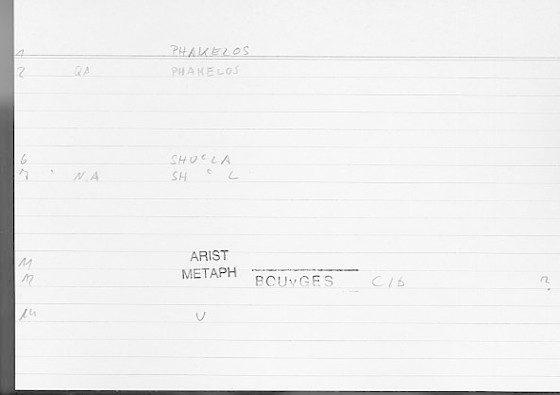 1 PHAKELOS
2 QA PHAKELOS
6 SHUᶜLA
7 N.A SH ᶜ L
ARIST
M
METAPH
M BOUYGES C/b ?
M U